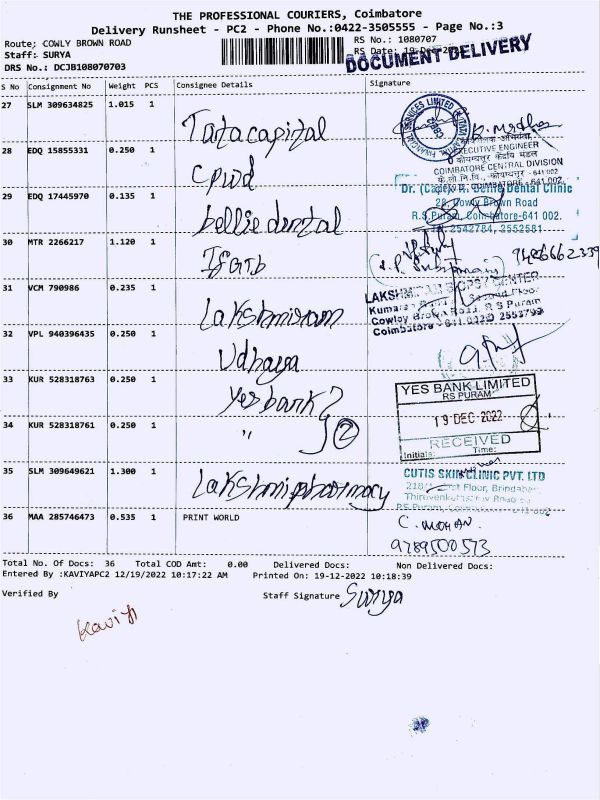 THE PROFESSIONAL COURIERS, Coimbatore
Delivery Runsheet - PC2 - Phone No.:0422-3505555 - Page No.:3
Route; COWLY BROWN ROAD
RS No.: 1080707
Staff: SURYA
RS Date: 19-Dec-2022
DOCUMENT DELIVERY
DRS No.: DCJB108070703
S No Consignment No Weight PCS Consignee Details Signature
27 SLM 309634825 1.015 1 Tata capital
28 EDQ 15855331 0.250 1 Cpwd
EXECUTIVE ENGINEER
कोयम्बत्तूर केंद्रीय मंडल
COIMBATORE CENTRAL DIVISION
COIMBATORE - 641 002.
29 EDQ 17445970 0.135 1 bellie dental
Dental Clinic
28, Cowly Brown Road
R.S. Puram, Coimbatore-641 002.
2542784, 2552581
30 MTR 2266217 1.120 1 Ifgtb
31 VCM 790986 0.235 1 Lakshmiram
Second Floor
Cowley Brown Road, R S Puram
Coimbatore - 641 002
32 VPL 940396435 0.250 1 Udhaya
33 KUR 528318763 0.250 1 Yes bank
YES BANK LIMITED
RS PURAM
19 DEC 2022
RECEIVED
Initials: Time:
34 KUR 528318761 0.250 1 " 2
35 SLM 309649621 1.300 1 Lakshmi pharmacy
CUTIS SKIN CLINIC PVT. LTD
Floor, Brindaban
36 MAA 285746473 0.535 1 PRINT WORLD
C. MOHAN.
9789500573
Total No. Of Docs: 36 Total COD Amt: 0.00 Delivered Docs: Non Delivered Docs:
Entered By :KAVIYAPC2 12/19/2022 10:17:22 AM Printed On: 19-12-2022 10:18:39
Verified By
Staff Signature Surya